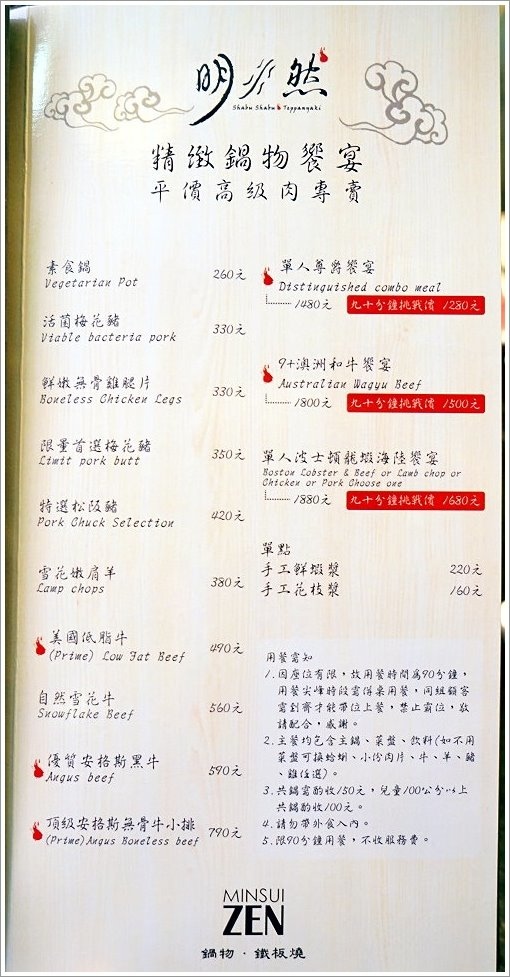 明水然
Shabu Shabu Teppanyaki
精緻鍋物饗宴
平價高級肉專賣
素食鍋 260元
Vegetarian Pot
活菌梅花豬 330元
Viable bacteria pork
鮮嫩無骨雞腿片 330元
Boneless Chicken Legs
限量首選梅花豬 350元
Limit pork butt
特選松阪豬 420元
Pork Chuck Selection
雪花嫩肩羊 380元
Lamp chops
美國低脂牛 490元
(Prime) Low Fat Beef
自然雪花牛 560元
Snowflake Beef
優質安格斯黑牛 590元
Angus beef
頂級安格斯無骨牛小排 790元
(Prime)Angus Boneless beef
單人尊爵饗宴
Distinguished combo meal
1480元 九十分鐘挑戰價 1280元
9+澳洲和牛饗宴
Australian Wagyu Beef
1800元 九十分鐘挑戰價 1500元
單人波士頓龍蝦海陸饗宴
Boston Lobster & Beef or Lamb chop or
Chicken or Pork Choose one
1880元 九十分鐘挑戰價 1680元
單點
手工鮮蝦漿 220元
手工花枝漿 160元
用餐需知
1.因座位有限，故用餐時間為90分鐘，
用餐尖峰時段需併桌用餐，同組顧客
需到齊才能帶位上餐，禁止霸位，敬
請配合，感謝。
2.主餐均包含主鍋、菜盤、飲料(如不用
菜盤可換蛤蜊、小份肉片、牛、羊、豬
、雞任選)。
3.共鍋需酌收150元，兒童100公分以上
共鍋酌收100元。
4.請勿帶外食入內。
5.限90分鐘用餐，不收服務費。
MINSUI
ZEN
鍋物·鐵板燒